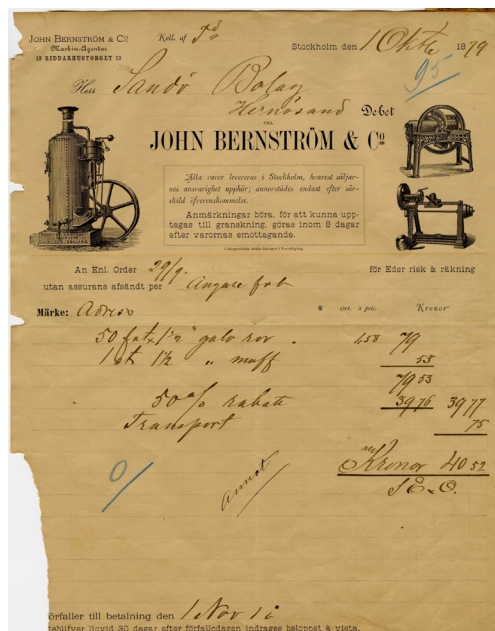 JOHN BERNSTRÖM & Cº
Maskin-Agentur
13 RIDDARHUSTORGET 13
Koll. af
Stockholm den 1 Oktb 1879
95
Herr Sandö Bolag
Hernösand
Debet
TILL
JOHN BERNSTRÖM & Cº
Alla varor levereras i Stockholm, hvarest säljar-
nes ansvarighet upphör; annorstädes endast efter sär-
skild öfverenskommelse.
Anmärkningar böra, för att kunna upp-
tagas till granskning, göras inom 8 dagar
efter varornas emottagande.
An Enl. Order 29/9. för Eder risk & räkning
utan assurans afsändt per Ångare fob
Märke: Adress Kronor
50 fot 1½" galv rör . 1,58 79
1 st 1½ " muff 53
79 53
50 % rabatt 39 76 39 77
Transport 75
Kronor 40 52
S. E. & O.
Annot
örfaller till betalning den 1 Nov
uteblifver liqvid 30 dagar efter förfallodagen indrages beloppet à vista.